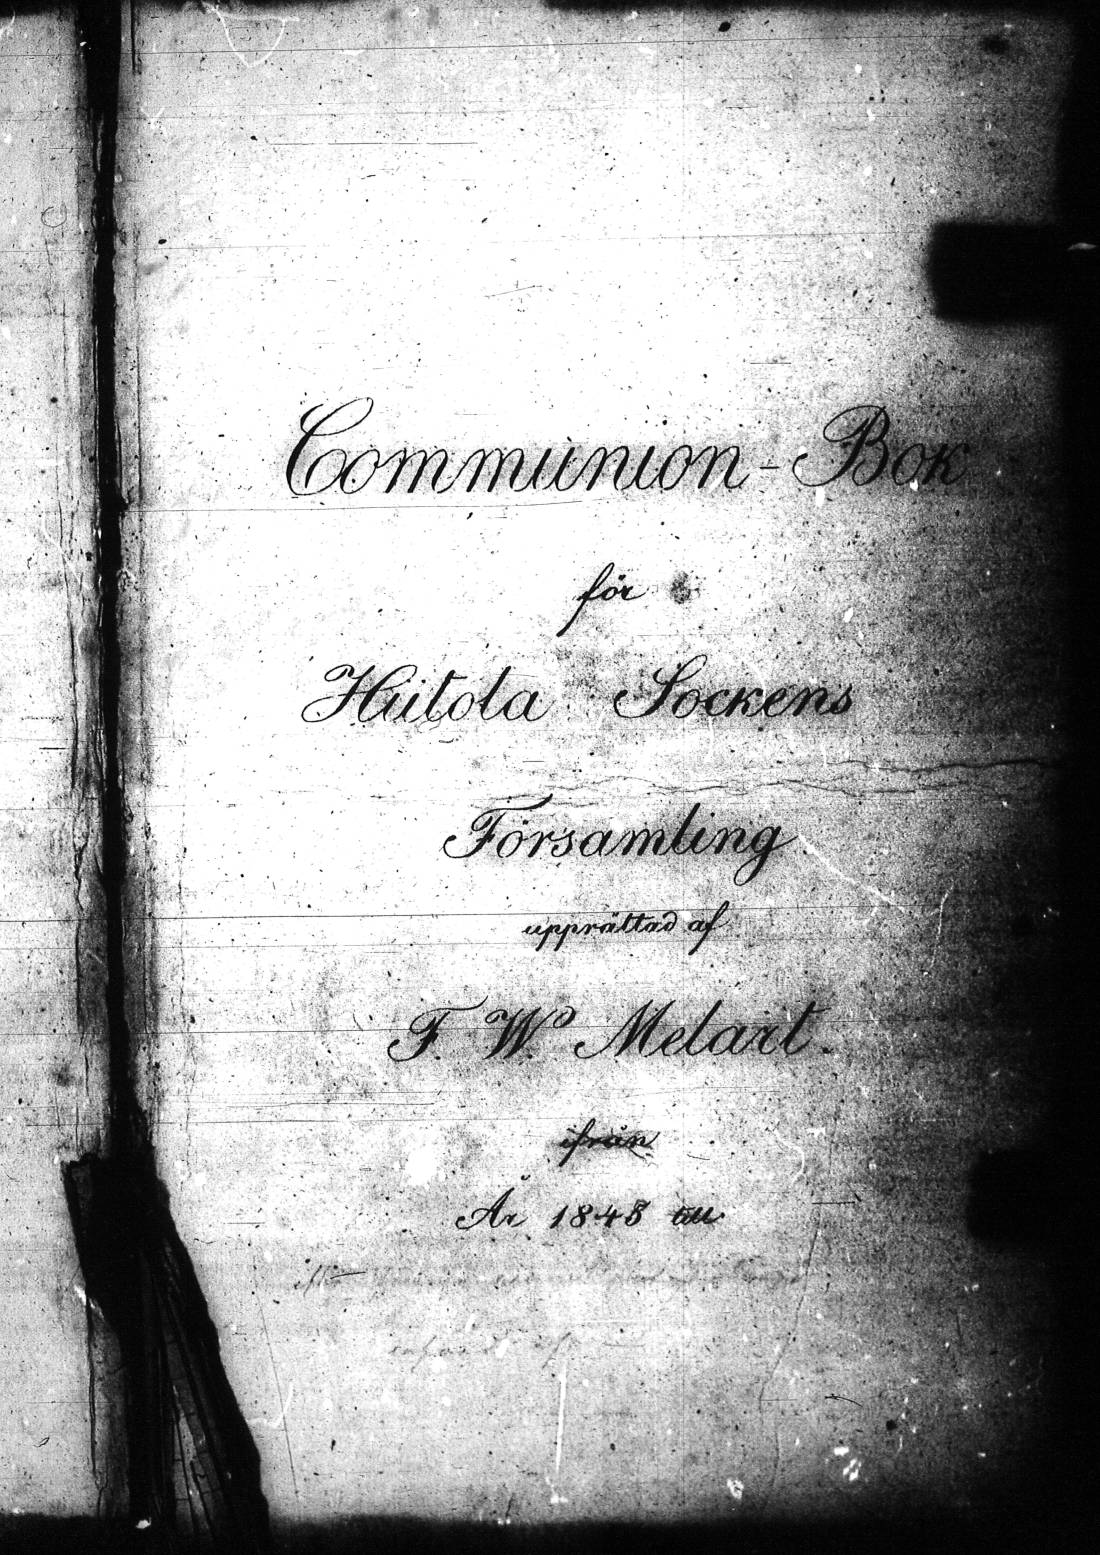 Communion-Bok
för
Hiitola Sockens
Församling
upprättad af
F. W. Melart.
ifrån
År 1843 till